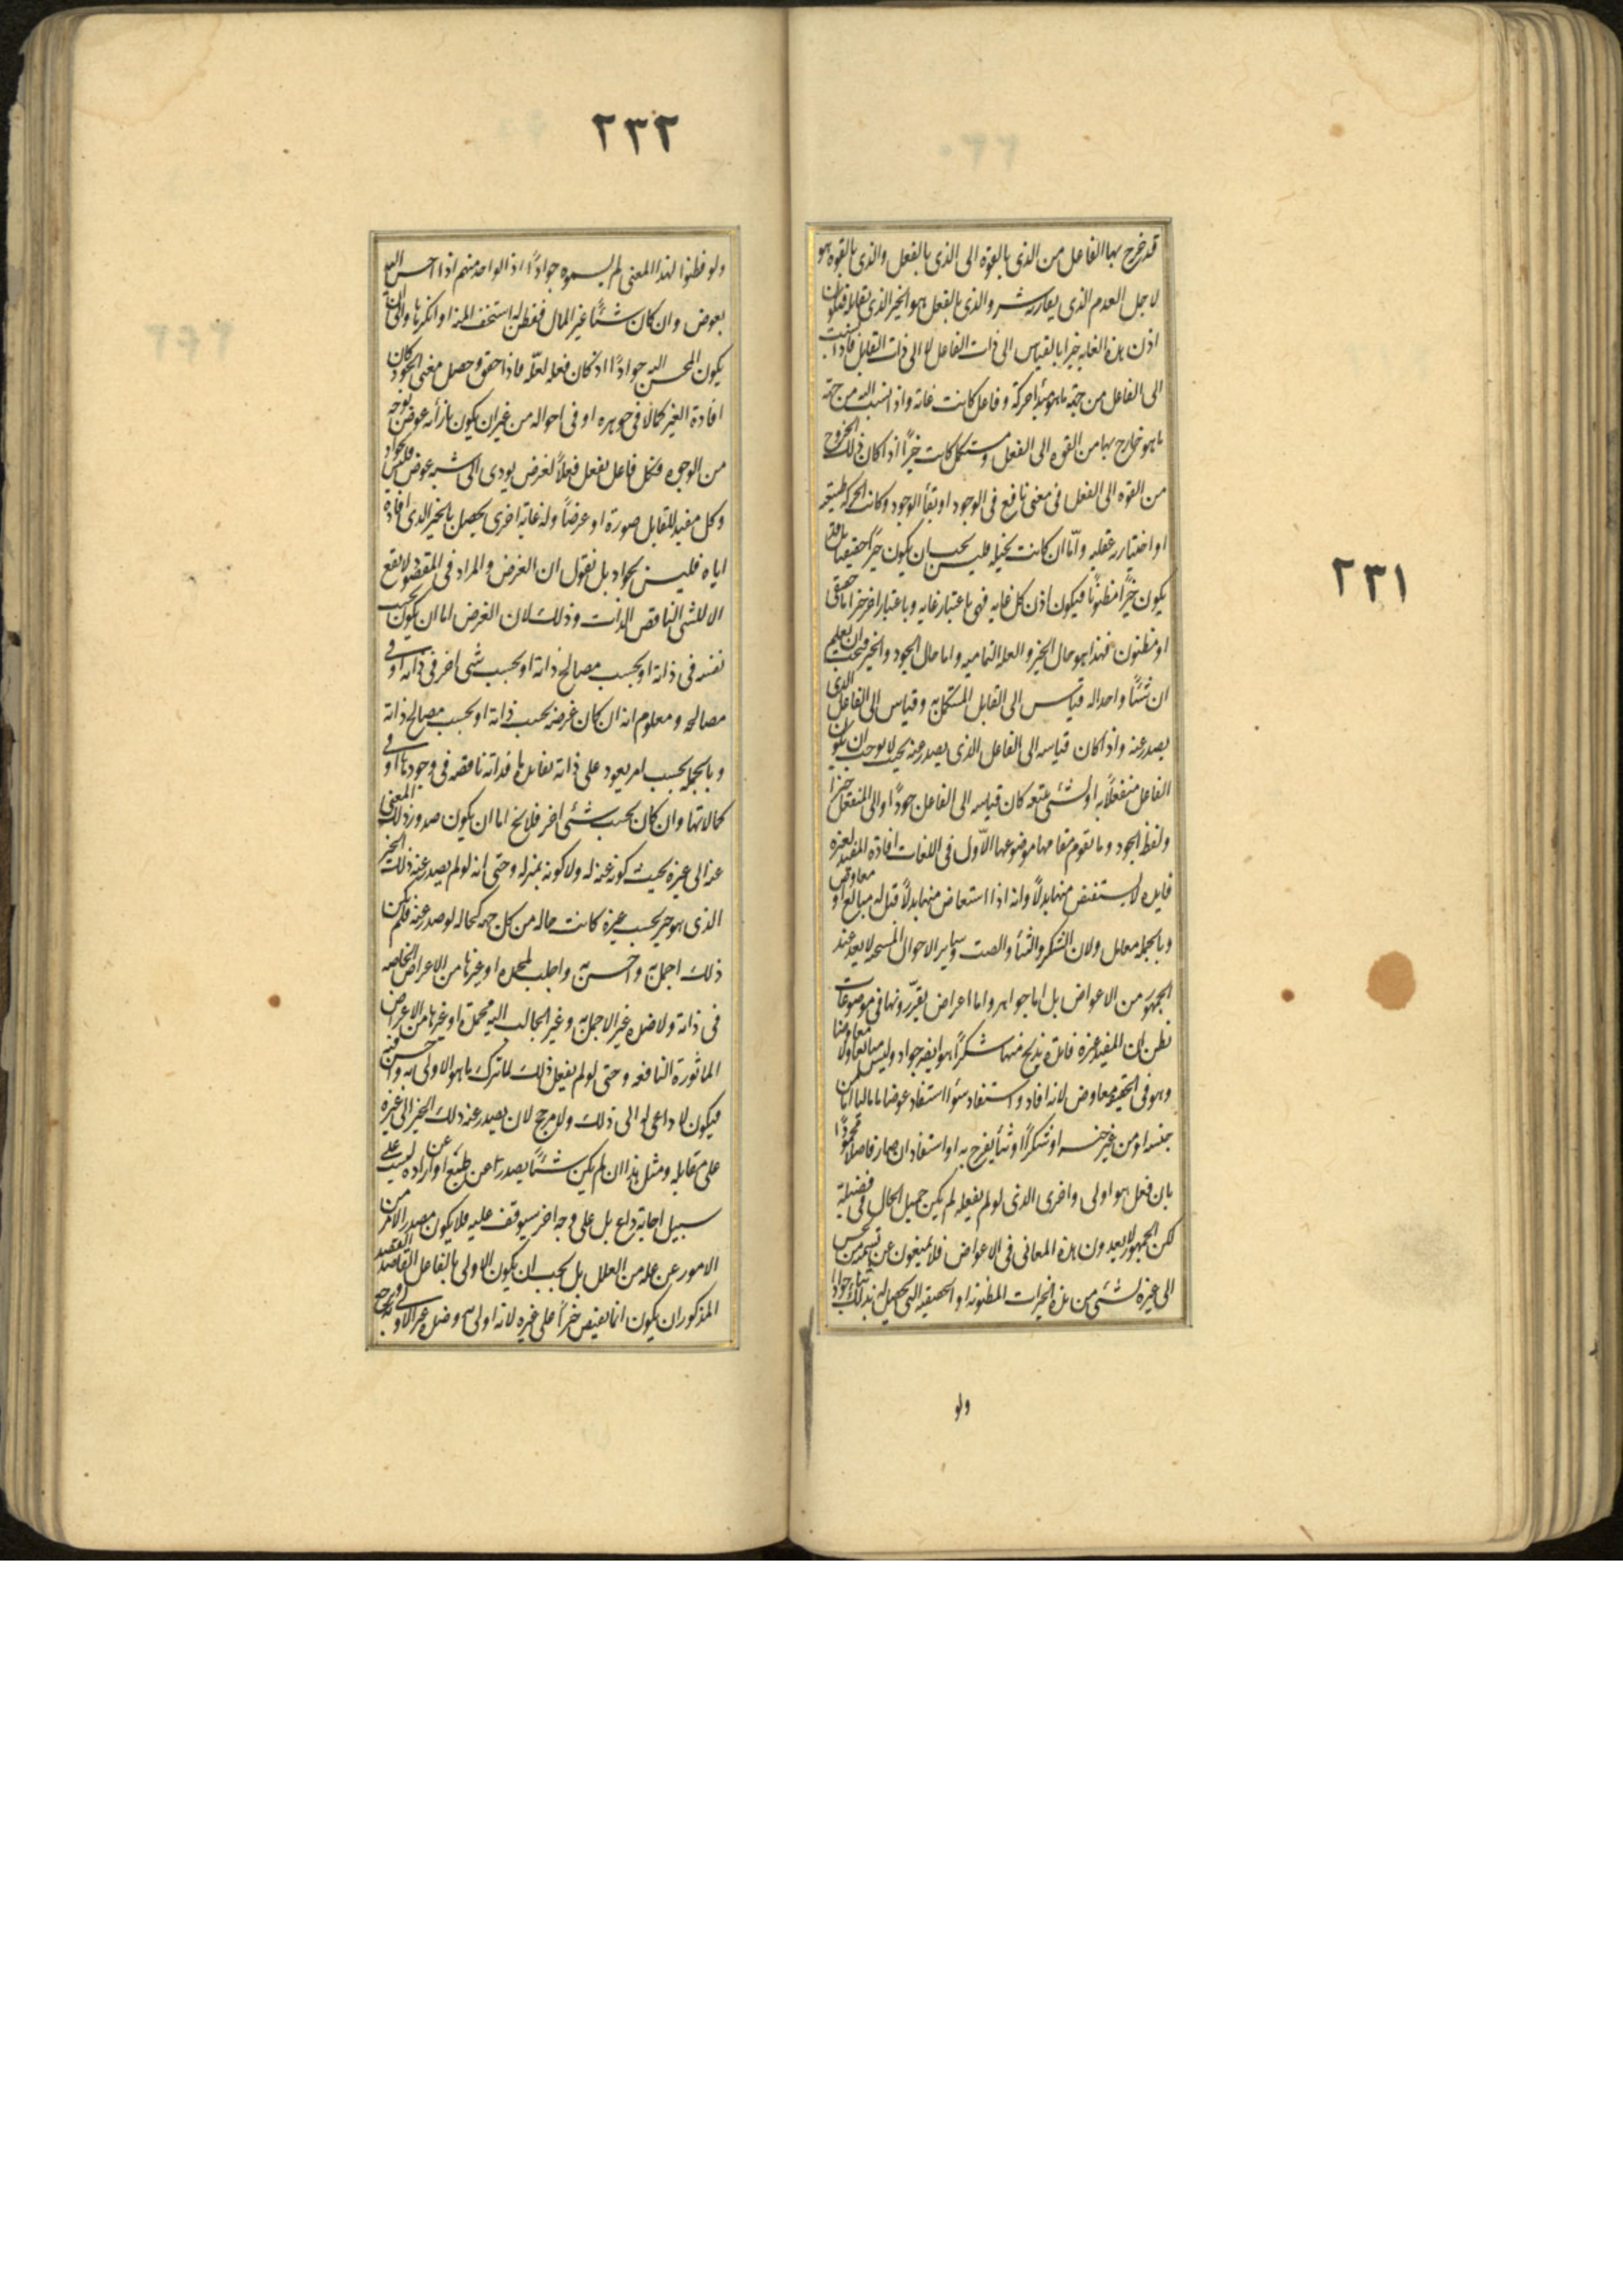 ٢٣١
قد خرج بها الفاعل من الذى بالقوة الى الذى بالفعل والذى بالقوة هو
لاجل العدم الذى يقارنه شر والذى بالفعل هو الخير الذى يقابله فتكون
اذن هذه الغاية خيرا بالقياس الى ذات الفاعل لا الى ذات القابل فاذا نسبت
الى الفاعل من جهة ما هو مبدأ حركة وفاعل كانت غاية واذا نسبت اليه من جهة
ما هو خارج بها من القوه الى الفعل ومستكمل كانت خيرًا اذا كان ذلك الخروج
من القوه الى الفعل فى معنى نافع فى الوجود او بقأ الوجود وكانت الحركه طبيعيه
او اختياريه عقليه وامّا ان كانت تخيليه فليس يجب ان يكون خيرًا حقيقيا بل قد
يكون خيرًا مظنونًا فيكون اذن كل غايه فهى باعتبار غايه وباعتبار اخر خير اما حقيقى
او مظنون فهذا هو حال الخير والعله التماميه واما حال الجود والخير فيجب ان يعلم
ان شيئًا واحدا له قياس الى القابل المستكمل به وقياس الى الفاعل الذى
يصدر عنه واذا كان قياسه الى الفاعل الذى يصدر عنه بحيث لا يوجب ان يكون
الفاعل منفعلًا به او بشئ يتبعه كان قياسه الى الفاعل جودًا والى المنفعل خيرا
ولفظة الجود وما يقوم مقامها موضوعها الاّول فى اللغات افادة المفيد لغيره
فايده لا يستفيض منها بدلًا وانه اذا استعاض منها بدلًا قيل له مبايع او معاوض
وبالجمله معامل ولان الشكر والثنأ والصت وساير الاحوال المستحسنه لا يعد عند
الجمهور من الاعواض بل اما جواهر واما اعراض يقرّرونها فى موضوعات
نظن ان المفيد غيره فايدة يربح منها شكرًا هو ايضه جواد وليس مبايعا ولا معاوضا
وهو فى الحقيقه معاوض لانه افاد واستفاد سوأ استفاد عوضا ما مالبا اما من
جنسه او من غير جنسه او شكرًا او ثنأ يفرح به او استفاد ان صار فاضلًا محمودًا
بان فعل ما هو اولى واحرى الذى لو لم يفعله لم يكن جميل الحال فى فضيلة
لكن الجمهور لا يعدون هذه المعانى فى الاعواض فلا يمنعون عن تسمية من يحسن
الى غيره بشئ من هذه الخيرات المظنونه او الحقيقيه التى يحصل له بذلك جوادا
ولو
٢٣٢
ولو فطنوا لهذا المعنى لم يسموه جوادًا اذ الواحد منهم اذا احسن اليه
بعوض وان كان شيئًا غير المال ففطن له استخف المنه او انكرها وابى ان
يكون المحسن اليه جوادًا اذ كان فعله لعلّه فاذا حقق وحصل معنى الجود كان
افادة الغير كمالًا فى جوهره او فى احواله من غير ان يكون بازأئه عوض بوجه
من الوجوه فكل فاعل يفعل فعلًا لغرض يودى الى شبه عوض فليس بجواد
وكل مفيد للقابل صورة او عرضًا وله غاية اخرى يحصل بالخير الذى افاده
اياه فليس بجواد بل نقول ان الغرض والمراد فى المقصود لا يقع
الا للشئ الناقص الذات وذلك لان الغرض اما ان يكون بحسب
نفسه فى ذاته او بحسب مصالح ذاته او بحسب شئ اخر فى ذاته او فى
مصالحه ومعلوم انه ان كان غرضه بحسب ذاته او بحسب مصالح ذاته
وبالجمله بحسب امر يعود على ذاته بفايدة ما فذاته ناقصه فى وجودها او فى
كمالاتها وان كان بحسب شئ اخر فلا يخ اما ان يكون صدور ذلك المعنى
عنه الى غيره بحيث كونه عنه له ولا كونه بمنزله وحتى انه لو لم يصدر عنه ذلك الخير
الذى هو خير بحسب غيره كانت حاله من كل جهه كحاله لو صدر عنه فلم يكن
ذلك اجمل به واحسن به واجلب لمحمدة او غيرها من الاعراض الخاصه
فى ذاته ولا ضده غير الاجمل به وغير الجالب اليه محمدة او غيرها من الاعراض
الماثورة النافعه وحتى لو لم يفعل ذلك لما ترك ما هو الاولى به واحسن به
فيكون لا داعى له الى ذلك ولا مرجح لان يصدر عنه ذلك الخير الى غيره
على مقابله ومثل هذا ان لم يكن شيئًا يصدر عن طبع او عن اراده ليست على
سبيل اجابة داع بل على وجه اخر سيوقف عليه فلا يكون مصدر الامر من
الامور عن علة من العلل بل يجب ان يكون الاولى بالفاعل القاصد القصد
المذكور ان يكون انما يفيض خيرًا على غيره لانه اولى به وضده غير الاولى ويرجع